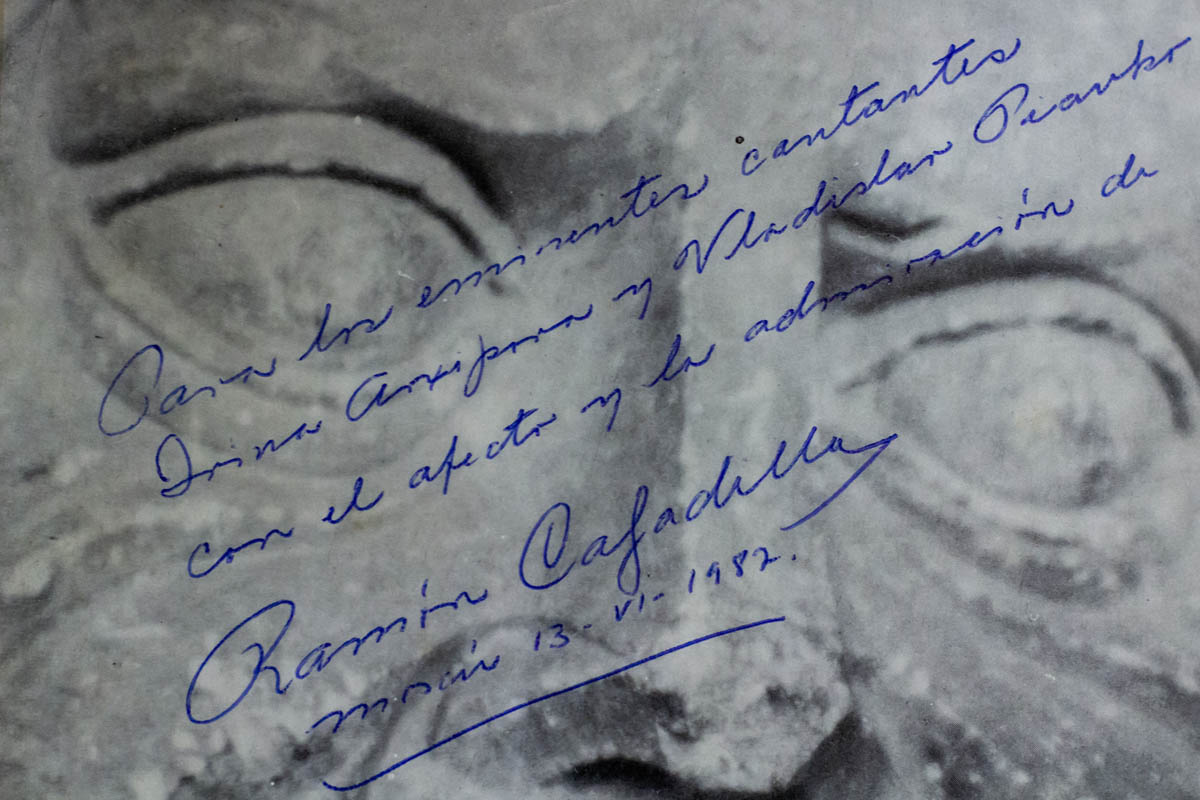 Para los eminentes cantantes
Irina Arxipova y Vladislav Piavko
con el afecto y la admiración de
Ramón Calzadilla
Moscú 13-VI-1982.